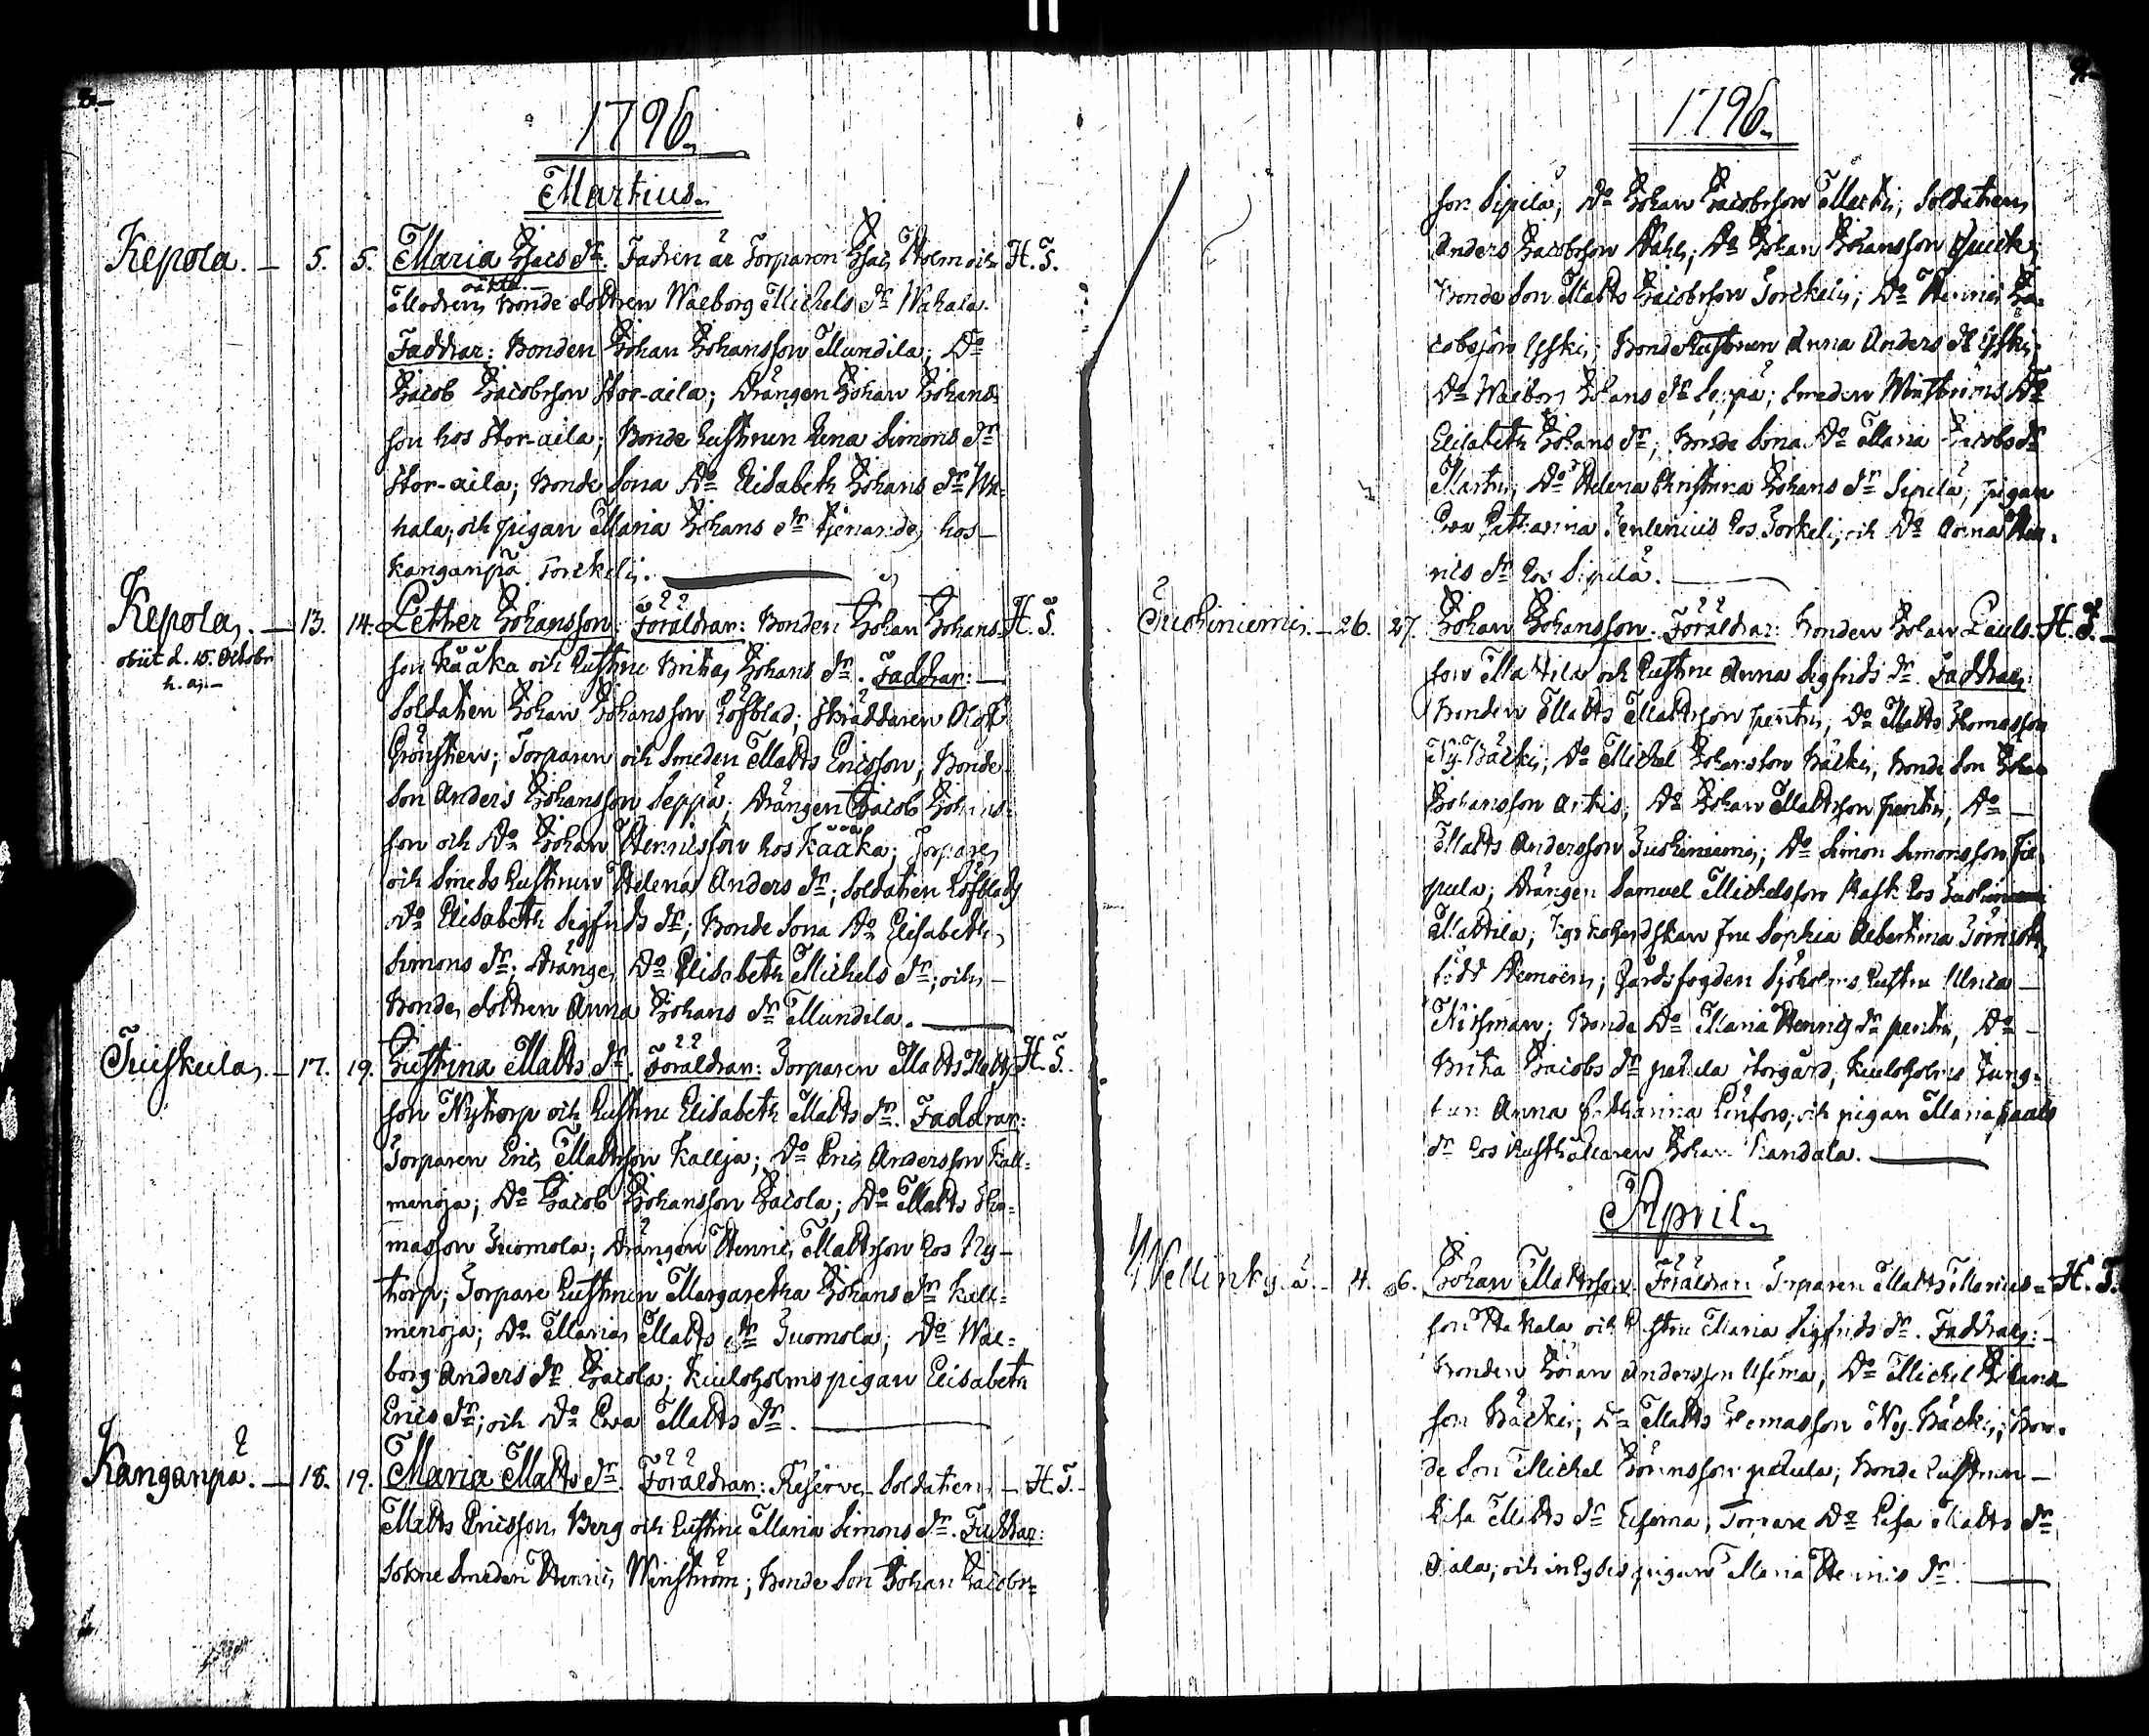 1796.
Martius.
Kepola. — 5. 5. Maria Isacs dr. Fadren är Torparen Isac Holm och H. T.
Modren äkta Bonde dottren Walborg Michels dr Wahala.
Faddrar: Bonden Johan Johansson Mundila; Do
Jacob Jacobsson Stor-aila; Drängen Johan Johans-
son hos Stor-aila; Bonde hustrun Lena Simons dr
Stor-aila; Bonde Sona Do Elisabeth Johans dr Wa-
hala; och pigan Maria Johans dr tjenande hos
Kanganpä Torckeli.
Kepola. — 13. 14. Petter Johansson. Föräldrar: Bonden Johan Johans- H. T.
obiit d. 15. Octobr
h. a.
son Kääka och hustru Brita Johans dr. Faddrar:
Soldaten Johan Johansson Löfblad; Skräddaren Olof
Grönsten; Torparen och Smeden Matts Ericsson; Bonde
Son Anders Johansson Seppä; Drängen Jacob Johans-
son och Do Johan Hennicsson hos Kääka; Torpare
och Smeds hustrun Helena Anders dr; Soldaten Löfblads
Do Elisabeth Sigfrids dr; Bonde Sona Do Elisabeth
Simons dr; Dränge Do Elisabeth Michels dr; och
Bonde dottren Anna Johans dr Mundila.
Tuiskula. — 17. 19. Gustina Matts dr. Föräldrar: Torparen Matts Matts- H. T.
son Nytorp och hustru Elisabeth Matts dr. Faddrar:
Torparen Eric Mattsson Kallja; Do Eric Andersson Kall-
menoja; Do Jacob Johansson Jacola; Do Matts Tho-
masson Juomola; Drängen Henric Mattsson hos Ny-
torp; Torpare hustrun Margaretha Johans dr Kall-
menoja; Do Maria Matts dr Juomola; Do Wal-
borg Anders dr Jacola; Kuuloholms pigan Elisabeth
Erics dr; och Do Eva Matts dr.
Kanganpä. — 18. 19. Maria Matts dr. Föräldrar: Reserve Soldaten — H. T.
Matts Ericsson Berg och hustru Maria Simons dr. Faddrar:
Sokne Smeden Henric Winström; Bonde Son Johan Jacobs-
1796.
son Sipilä; Do Johan Jacobsson Martti; Soldaten
Anders Jacobsson Stahl; Do Johan Johansson Quick;
Bonde Son Matts Jacobsson Torckeli; Do Henric Ja-
cobsson Eskis; Bonde hustrun Anna Anders dr Eskis;
Do Walborg Johans dr Seppä; Smeden Winströms Do
Elisabeth Johans dr; Bonde Sona Do Maria Jacobs dr
Martti; Do Helena Christina Johans dr Sipilä; pigan
Eva Catharina Jenlenius hos Torkeli; och Do Anna Hen-
rics dr hos Sipilä.
26. 27. Johan Johansson. Föräldrar: Bonden Johan Pauls- H. T.
son Mattila och hustru Anna Sigfrids dr. Faddrar:
Bonden Matts Mattsson Penttu; Do Matts Thomasson
Ny-Bäcki; Do Michel Johansson Bäcki; Bonde Son Johan
Johansson Do Johan Mattsson Penttu; Do
Matts Andersson Do Simon Simonsson
Drängen Samuel Michelsson Rask hos
Mattila; Fru Sophia Albertina
född Gårdsfogden Sjöholms hustru Ulrica
Bonde Do Maria Henrics dr Penttu; Do
Brita Jacobs dr Storgård; Kuuloholms Jung-
frun Anna Catharina och pigan Maria
dr hos Rusthållaren Johan Kandala.
April.
4. 6. Johan Mattsson. Föräldrar: Torparen Matts H. T.
son Hakala och hustru Maria Sigfrids dr. Faddrar:
Bonden Andersson Do Michel Johans-
son Bäcki; Do Matts Thomasson Ny-Bäcki; Bon-
de Son Michel Bonde hustrun
Lisa Matts dr Torpare Do Lisa Matts dr
och inhyses pigan Maria Henrics dr.